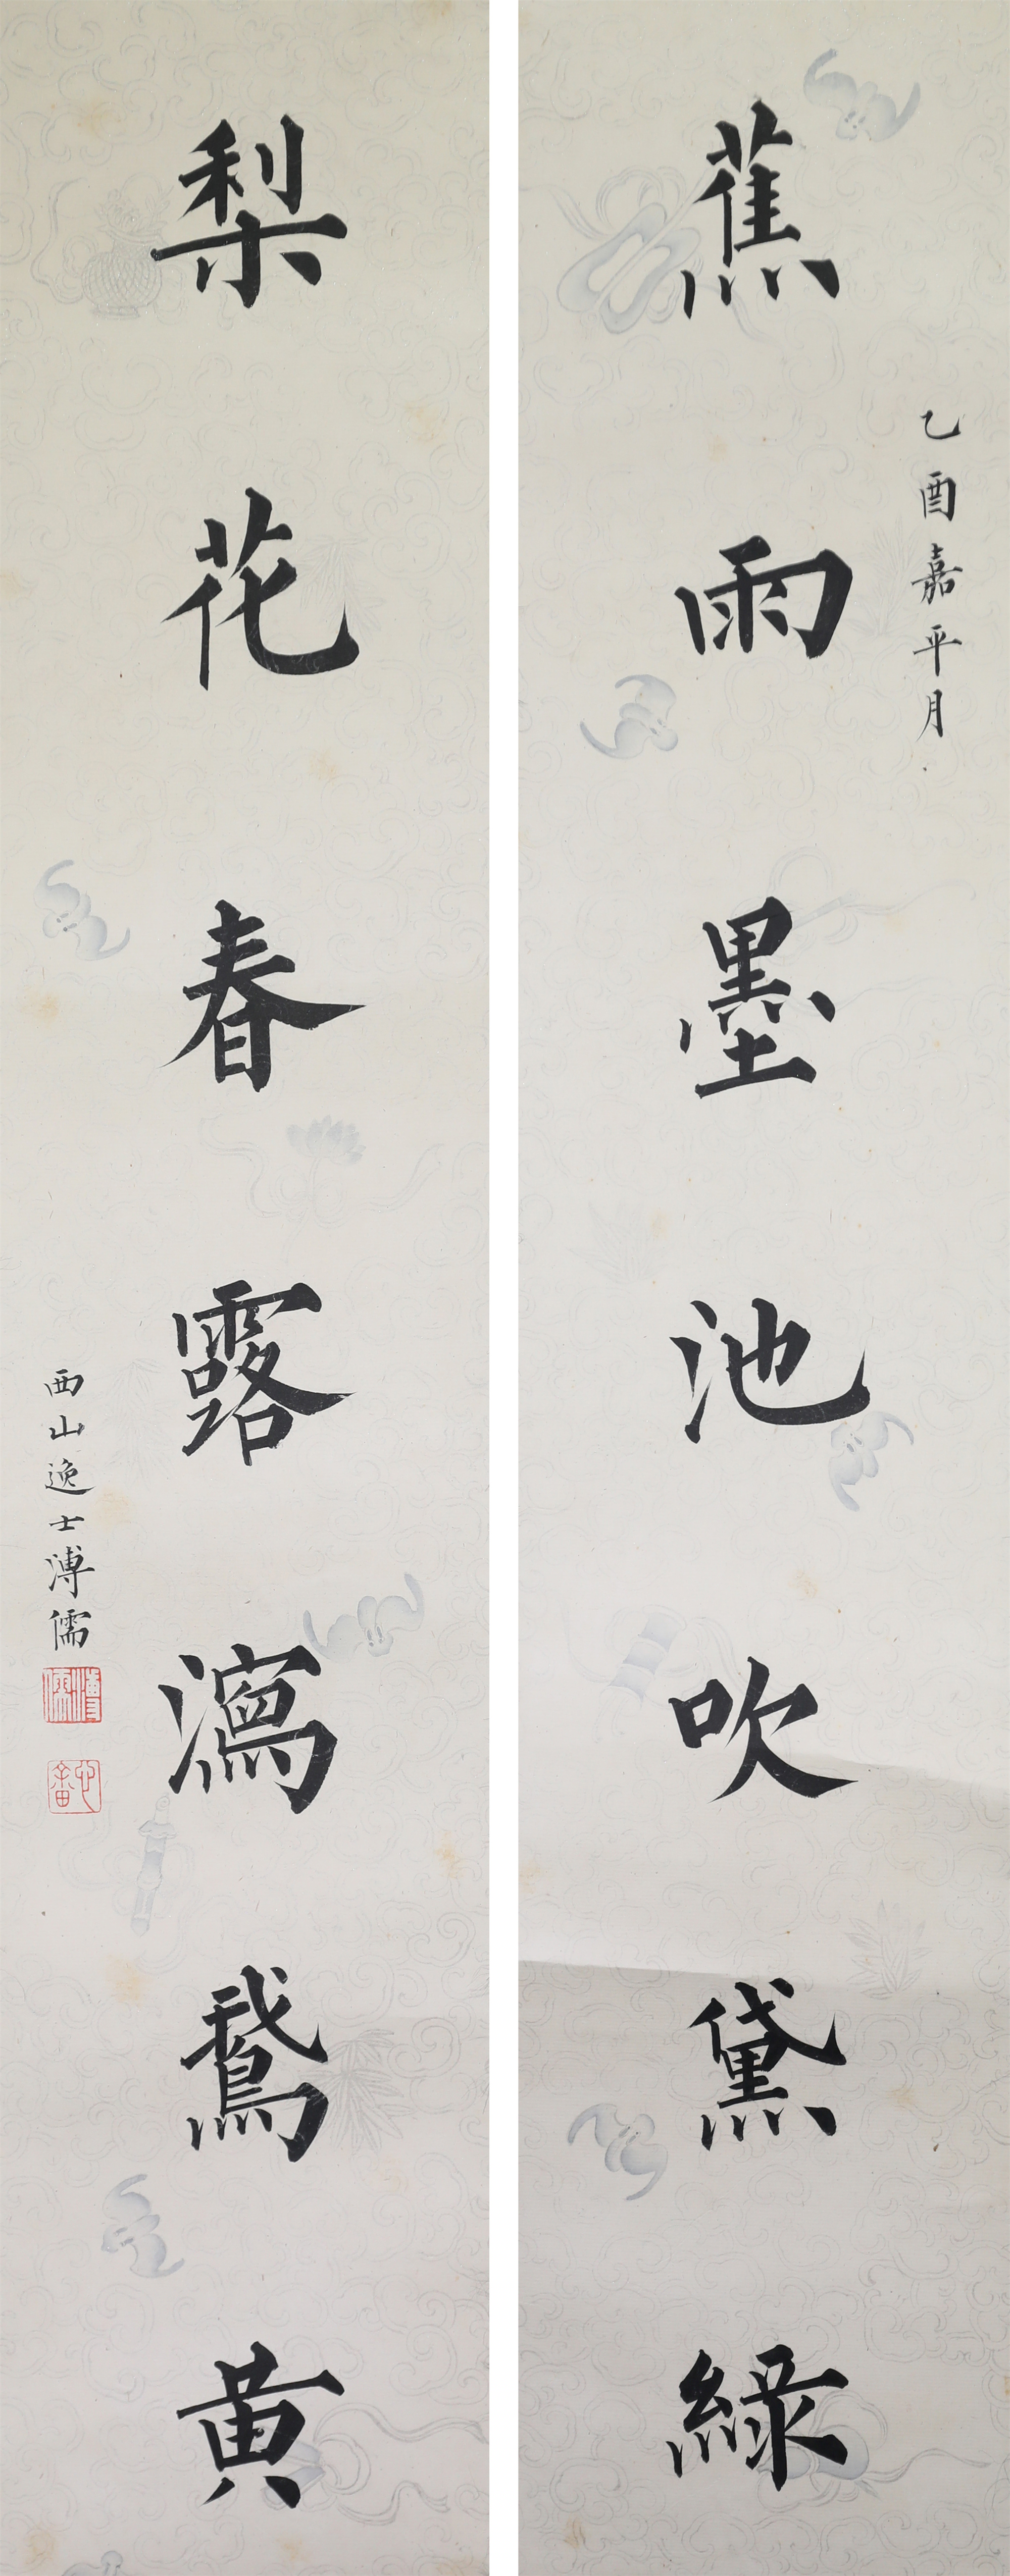 乙酉嘉平月
蕉雨墨池吹黛綠
梨花春露瀉鵞黃
西山逸士溥儒
溥儒